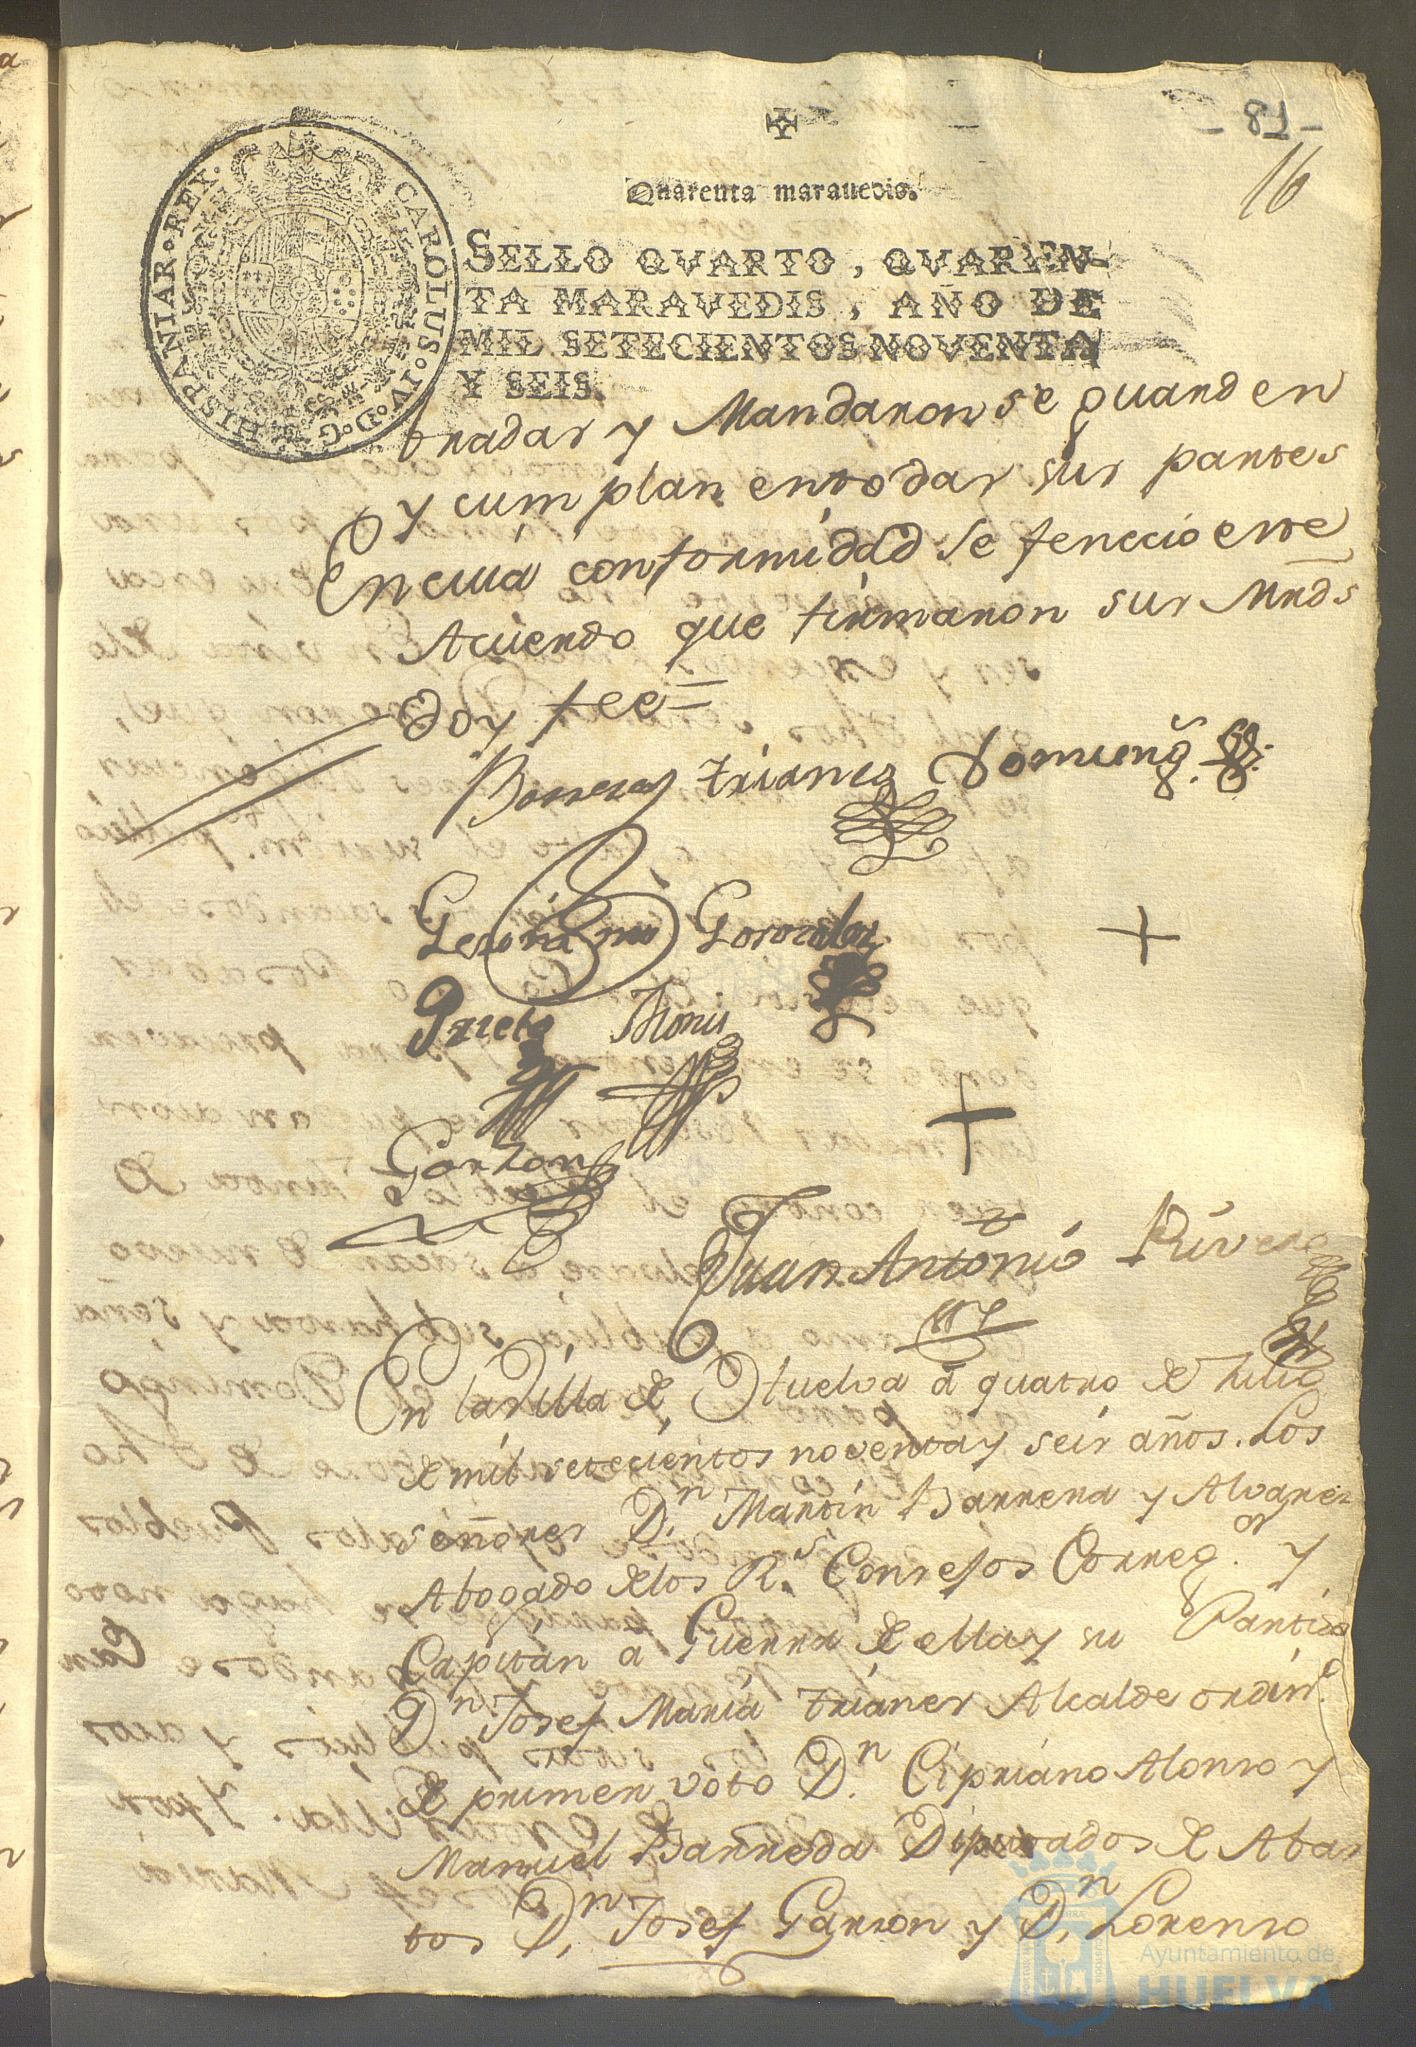 - 81 -
16
Quarenta maravedis.
CAROLUS • IV • D • G • HISPANIAR • REX •
SELLO QVARTO, QVAREN-
TA MARAVEDIS, AÑO DE
MIL SETECIENTOS NOVENTA
Y SEIS.
nadas y Mandaron se guarden
y cumplan en todas sus partes
En cuia conformidad se feneció este
Acuerdo que firmaron sus Mrds
Doy fee
Barrera Trianes Doming.
Geronimo Gonzales
Prieto Alonso
Garzon
Juan Antonio Rivera
En la Villa de Huelva a quatro de Julio
de mil setecientos noventa y seis años. Los
señores Dn. Martin Barrera y Alvarez
Abogado de los Rs. Consejos Correg.or y
Capitan a Guerra de ella y su Partido
Dn. Josef Maria Trianes Alcalde ordin.o
de primer voto Dn. Cipriano Alonso y
Manuel Barreda Diputados de Abas
tos Dn. Josef Garzon y Dn. Lorenzo
Ayuntamiento de
HUELVA